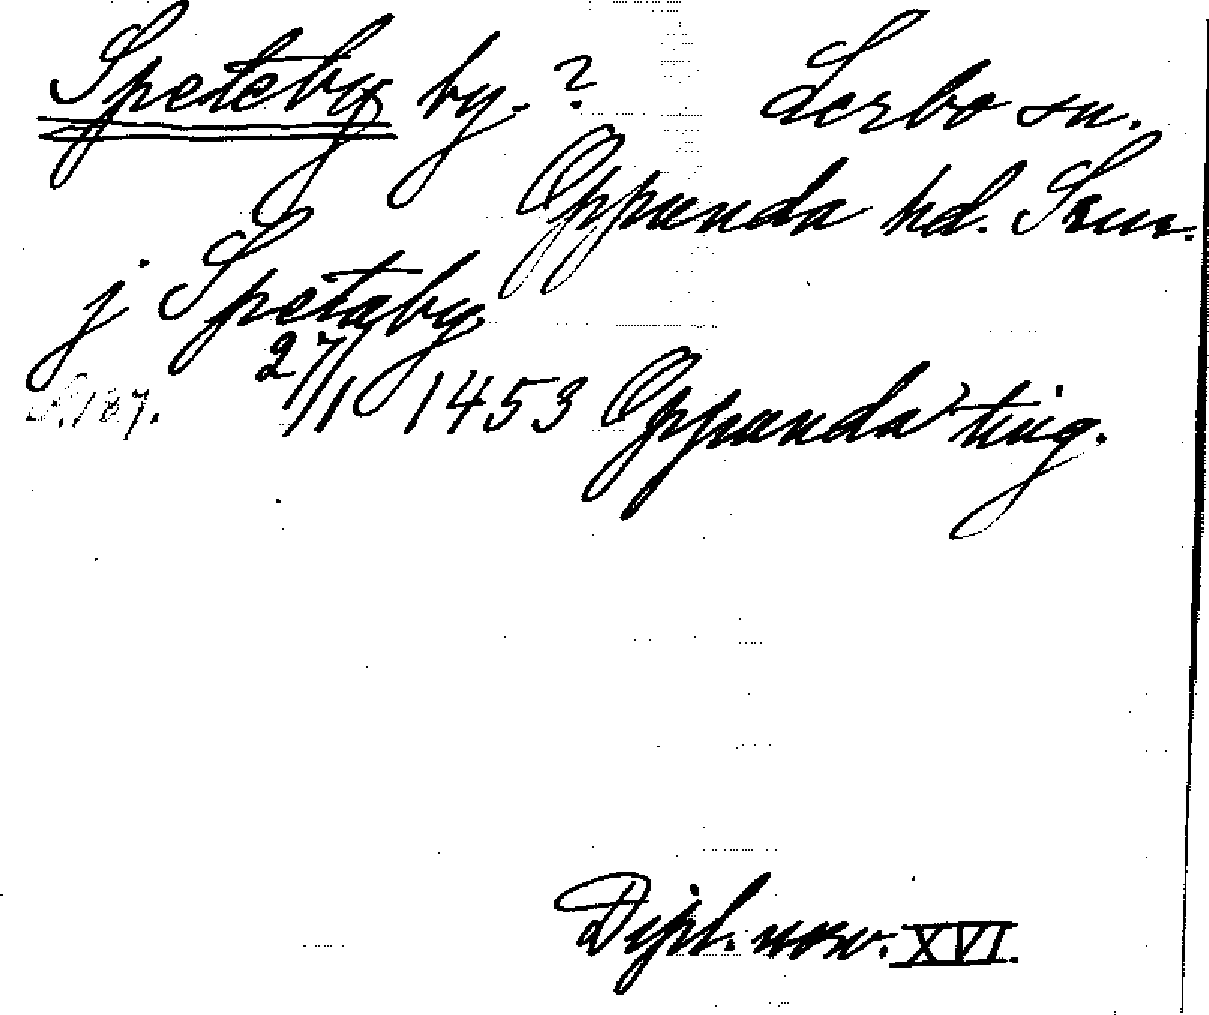 Speteby by. ? Lerbo sn.
Oppunda hd. Srm.
j Spetaby
S. 187. 27/1 1453 Oppunda ting.
Dipl. norv. XVI.